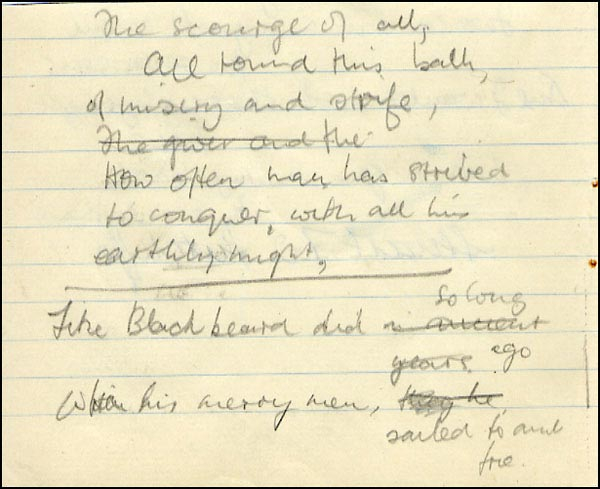 The scourge of all,
All round this ball,
of misery and strife,
The giver and the
How often man has strived
to conquer, with all his
earthly might,
so long
Like Blackbeard did in ancient
years ago
When his merry men, they he
sailed to and
froe.